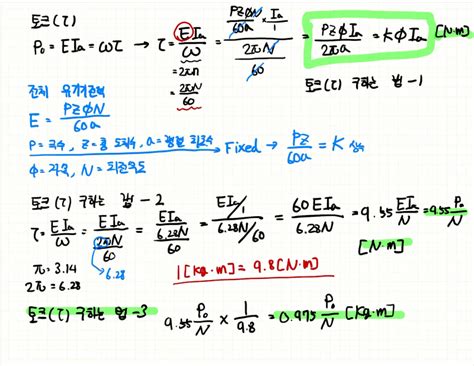 토크(τ)
P₀ = EIa = ωτ → τ = EIa/ω = (PZφN/60a × Ia/1)/(2πN/60) = PZφIa/2πa = KφIa [N·m]
= 2πn
= 2πN/60
토크(τ) 구하는 법 -1
전체 유기기전력
E = PZφN/60a
P = 극수, Z = 총 도체수, a = 병렬 회로수 Fixed → PZ/60a = K 상수
φ = 자속, N = 회전속도
토크(τ) 구하는 법 -2
τ = EIa/ω = EIa/(2πN/60) = EIa/(6.28N/60) = (EIa/1)/(6.28N/60) = 60EIa/6.28N = 9.55 EIa/N = 9.55 P₀/N
6.28
[N·m]
π = 3.14
2π = 6.28
1[kg·m] = 9.8[N·m]
토크(τ) 구하는 법 -3
9.55 P₀/N × 1/9.8 = 0.975 P₀/N [kg·m]